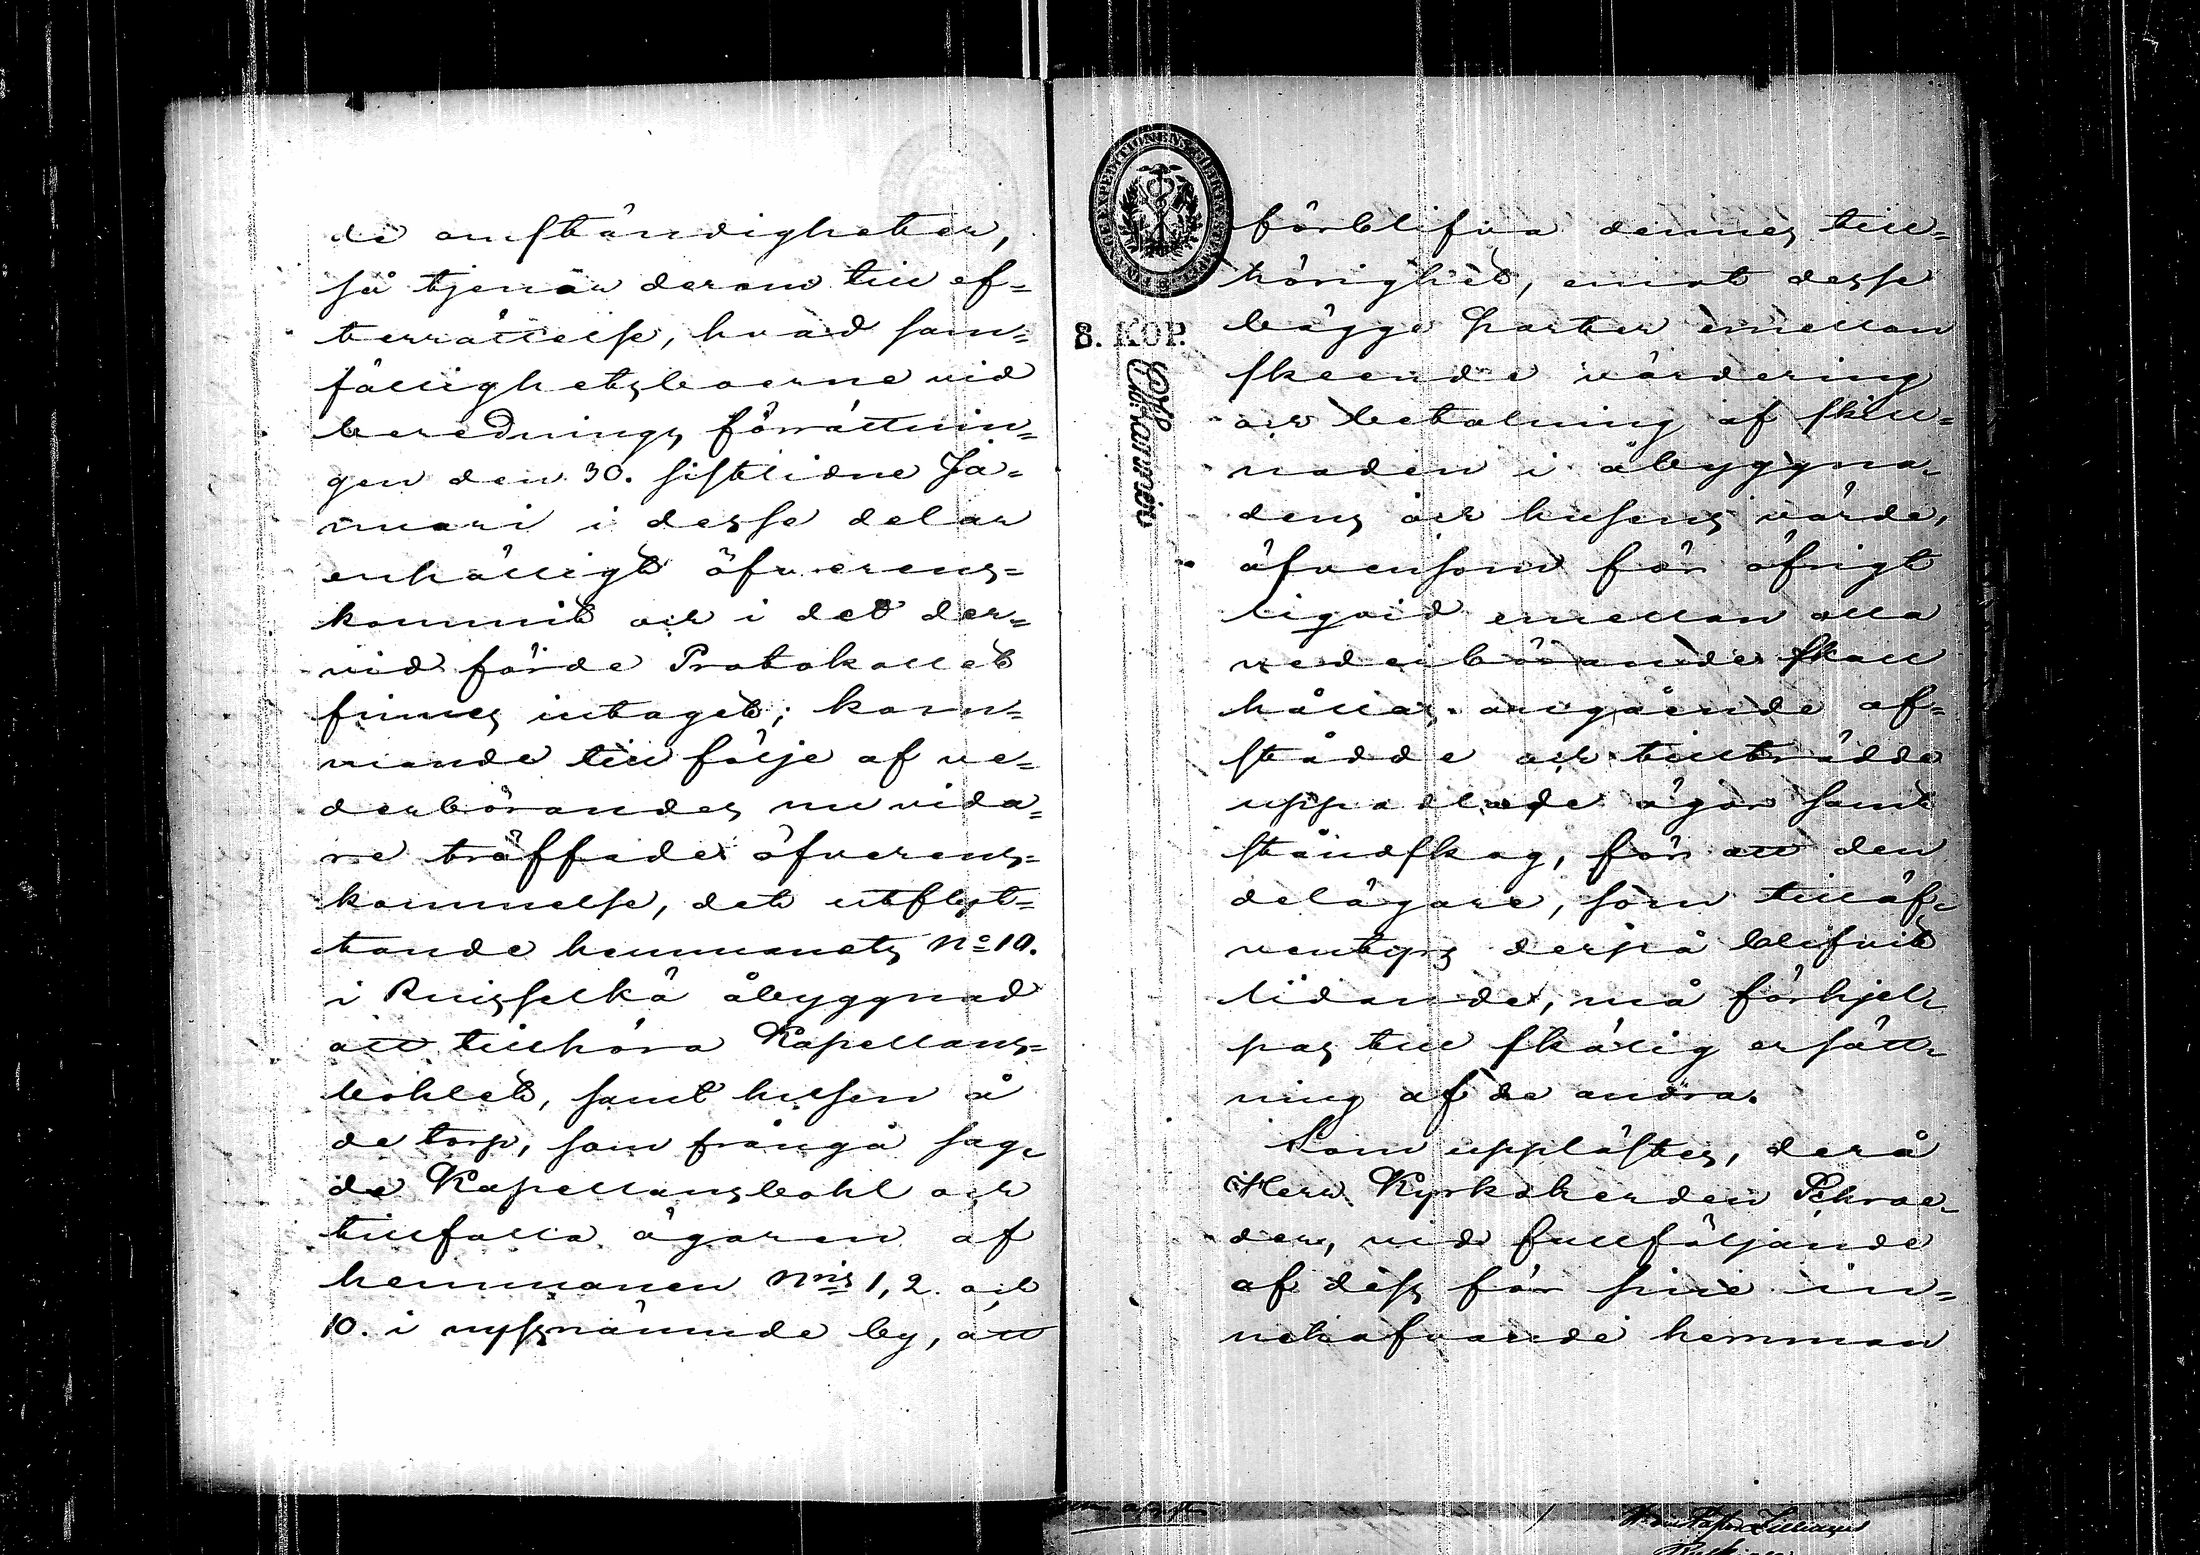 de omständigheter,
så tjenar derom till ef=
terrättelse, hvad sam=
fällighetsboerne vid
berednings förrättnin=
gen den 30. sistlidne Ja=
nuari i desse delar
enhälligt öfverens=
kommit och i det der=
vid förde Protokollet
finnes intaget; kom=
mande till följe af ve=
derbörandes nu vida=
re träffade öfverens=
kommelse, det utflyt=
tande hemmanets No 10.
i Ruisselkä åbyggnad
att tillhöra Kapellans=
bohlet, samt husen å
de torp, som frångå sag=
da Kapellansbohl och
tillfalla ägaren af
hemmanen Nris 1, 2. och
10. i nyssnämnde by, att
8. KOP.
förblifva dennes till=
hörighet, emot desse
bägge parter emellan
skeende värdering
och betalning af skill=
naden i åbyggna=
dens och husens värde,
äfvensom för öfrigt
liqvid emellan alla
vederbörande skall
hållas angående af=
städde och tillträdde
uppodlade ägor samt
ståndskog, för att den
delägare, som tilläf=
ventyrs derpå blifvit
lidande, må förhjel=
pas till skälig ersätt=
ning af de andra.
Som upplästes, derå
Herr Kyrkoherden Schroe=
der, vid fullföljande
af dess för sine in=
nehafvande hemman